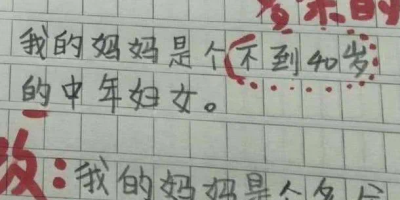 我的妈妈是个不到40岁
的中年妇女。
改:我的妈妈是个